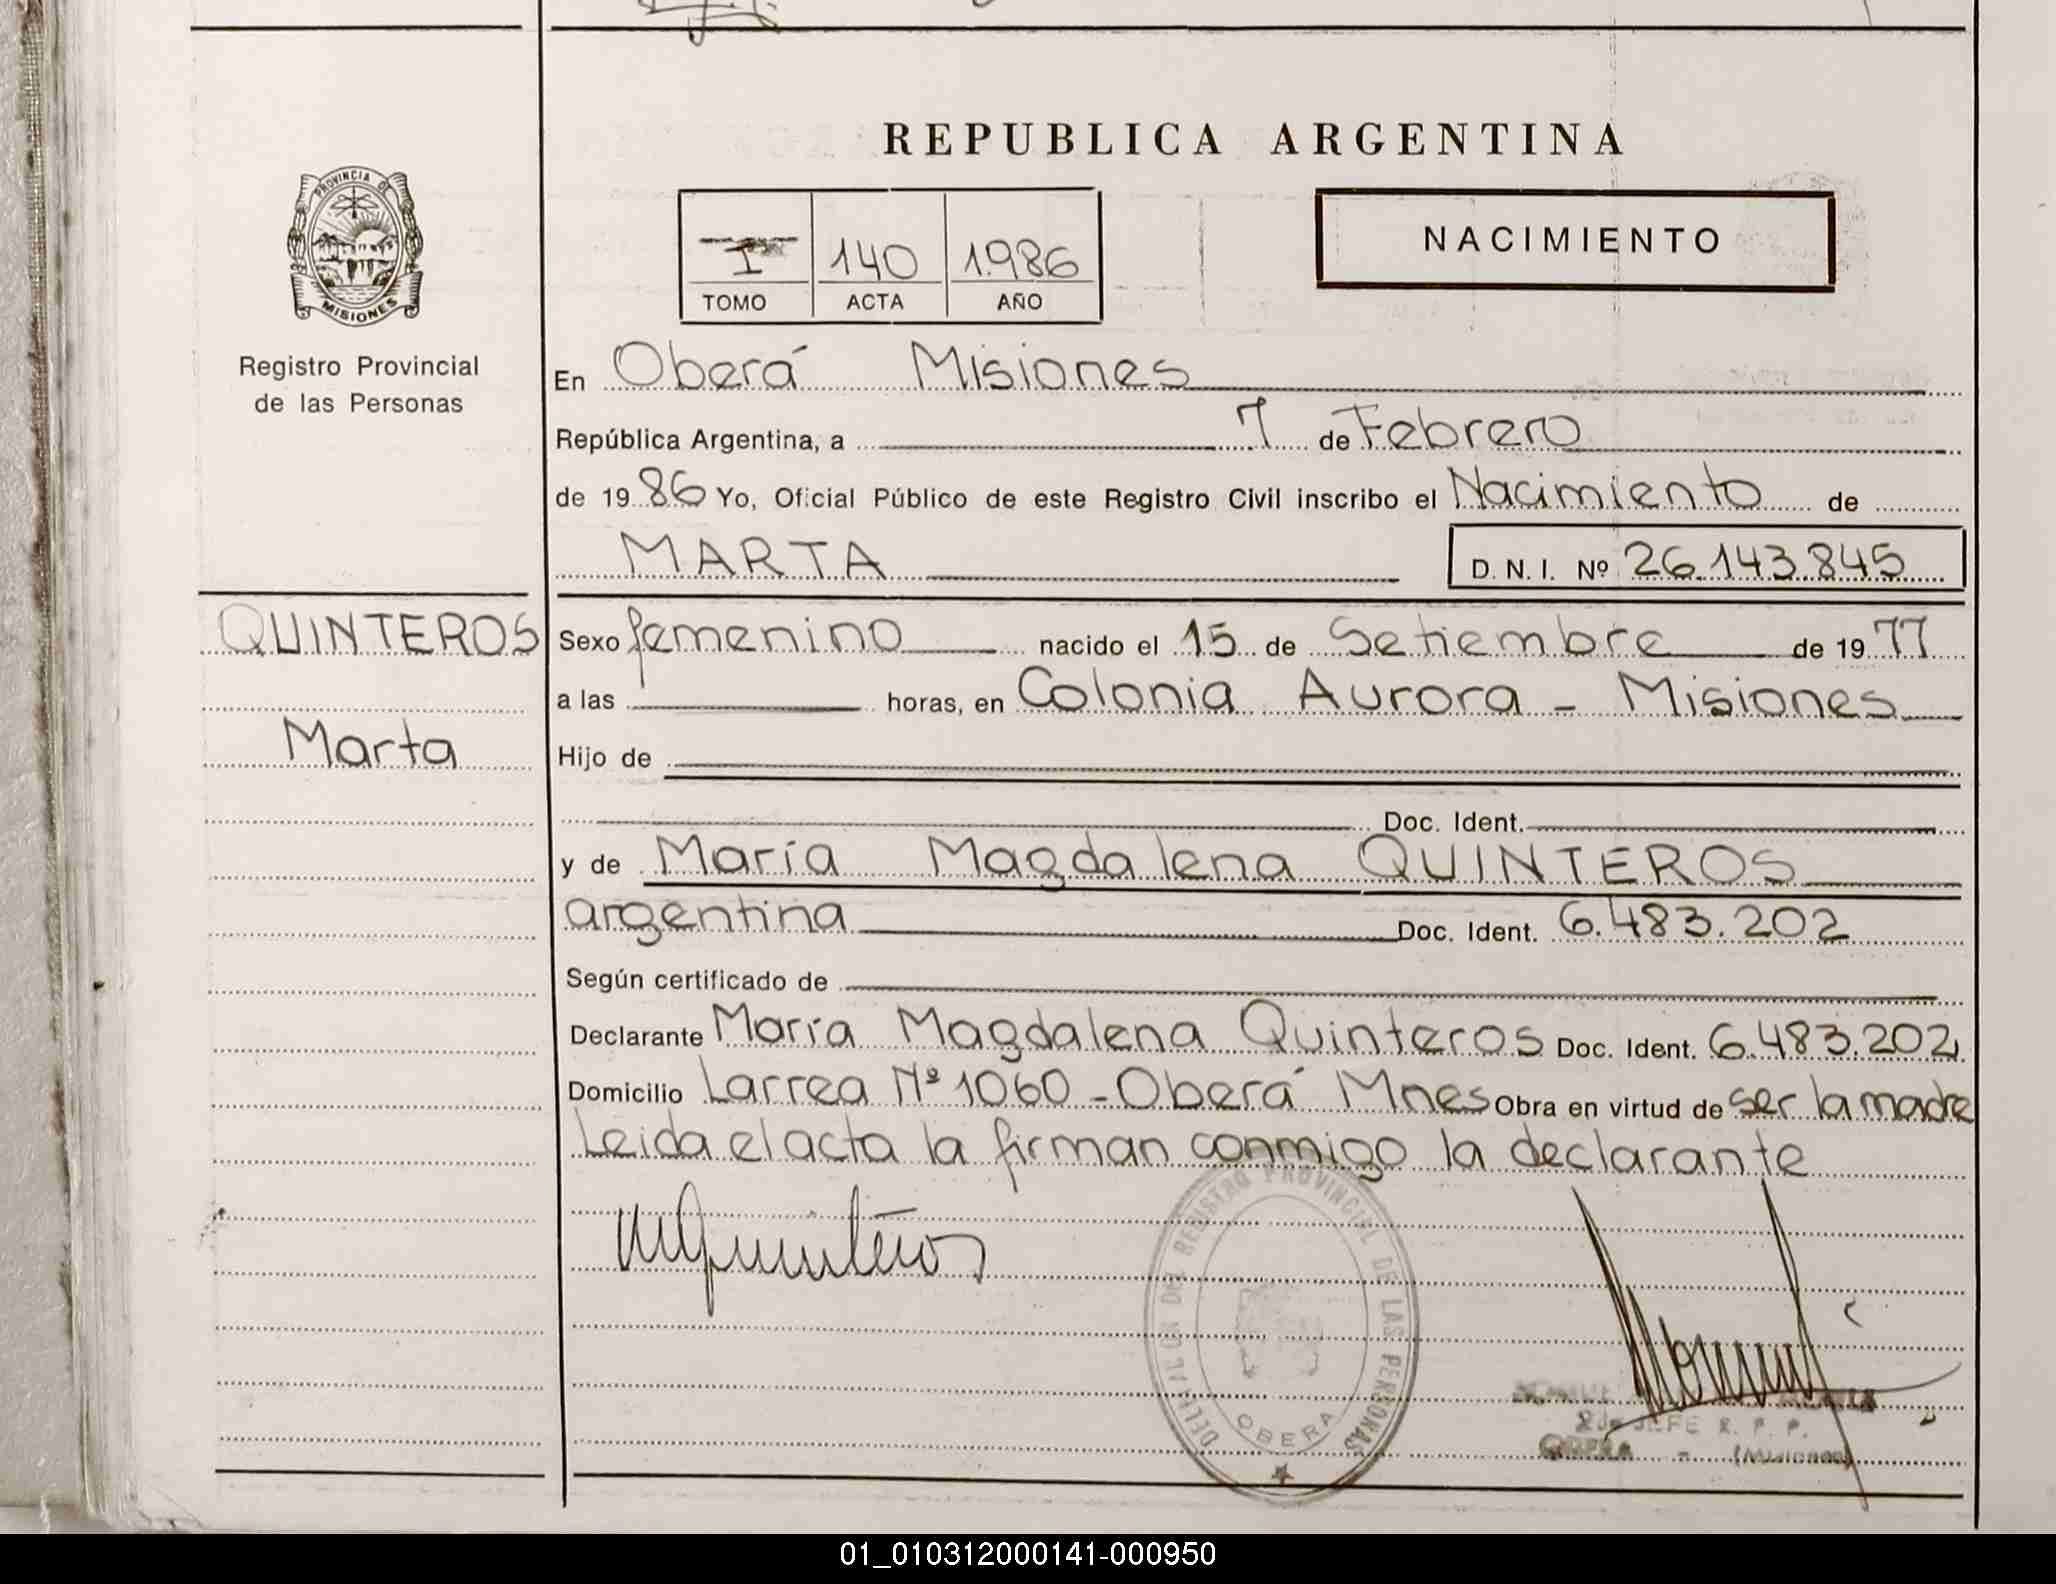 REPUBLICA ARGENTINA
PROVINCIA DE
MISIONES
I 140 1.986
TOMO ACTA AÑO
NACIMIENTO
Registro Provincial
de las Personas
En Oberá Misiones
República Argentina, a 7 de Febrero
de 19 86 Yo, Oficial Público de este Registro Civil inscribo el Nacimiento de
MARTA D. N. I. Nº 26.143.845
QUINTEROS
Marta
Sexo femenino nacido el 15 de Setiembre de 19 77
a las horas, en Colonia Aurora - Misiones
Hijo de
Doc. Ident.
y de María Magdalena QUINTEROS
argentina Doc. Ident. 6.483.202
Según certificado de
Declarante María Magdalena Quinteros Doc. Ident. 6.483.202
Domicilio Larrea Nº 1060 - Oberá Mnes Obra en virtud de ser la madre
Leida el acta la firman conmigo la declarante
MQuinteros
REGISTRO PROVINCIAL DE LAS PERSONAS
OBERA
JEFE R. P. P.
OBERA - (Misiones)
01_010312000141-000950